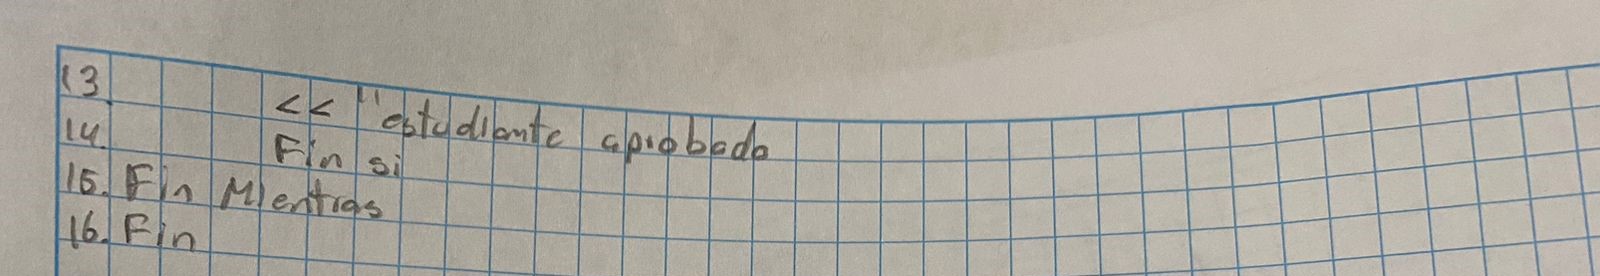 13. << "estudiante aprobado
14. Fin si
15. Fin Mientras
16. Fin